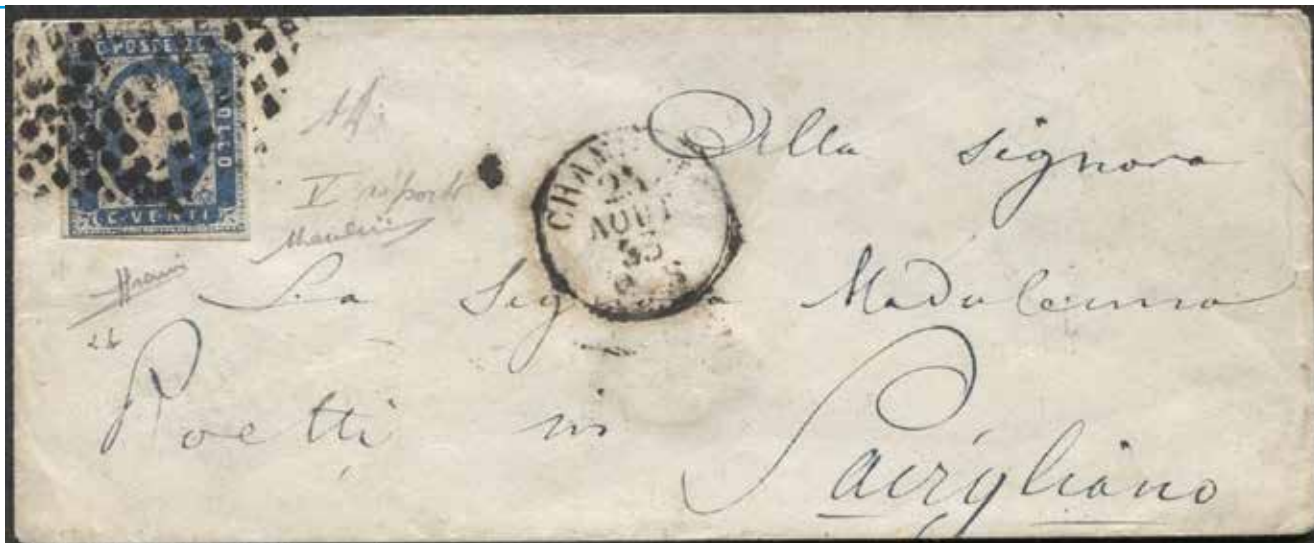 C. POSTE 20
BOLLO
C. VENTI
V riporto
AOUT
53
Alla Signora
La Signora Madalena
Poetti in
Savigliano